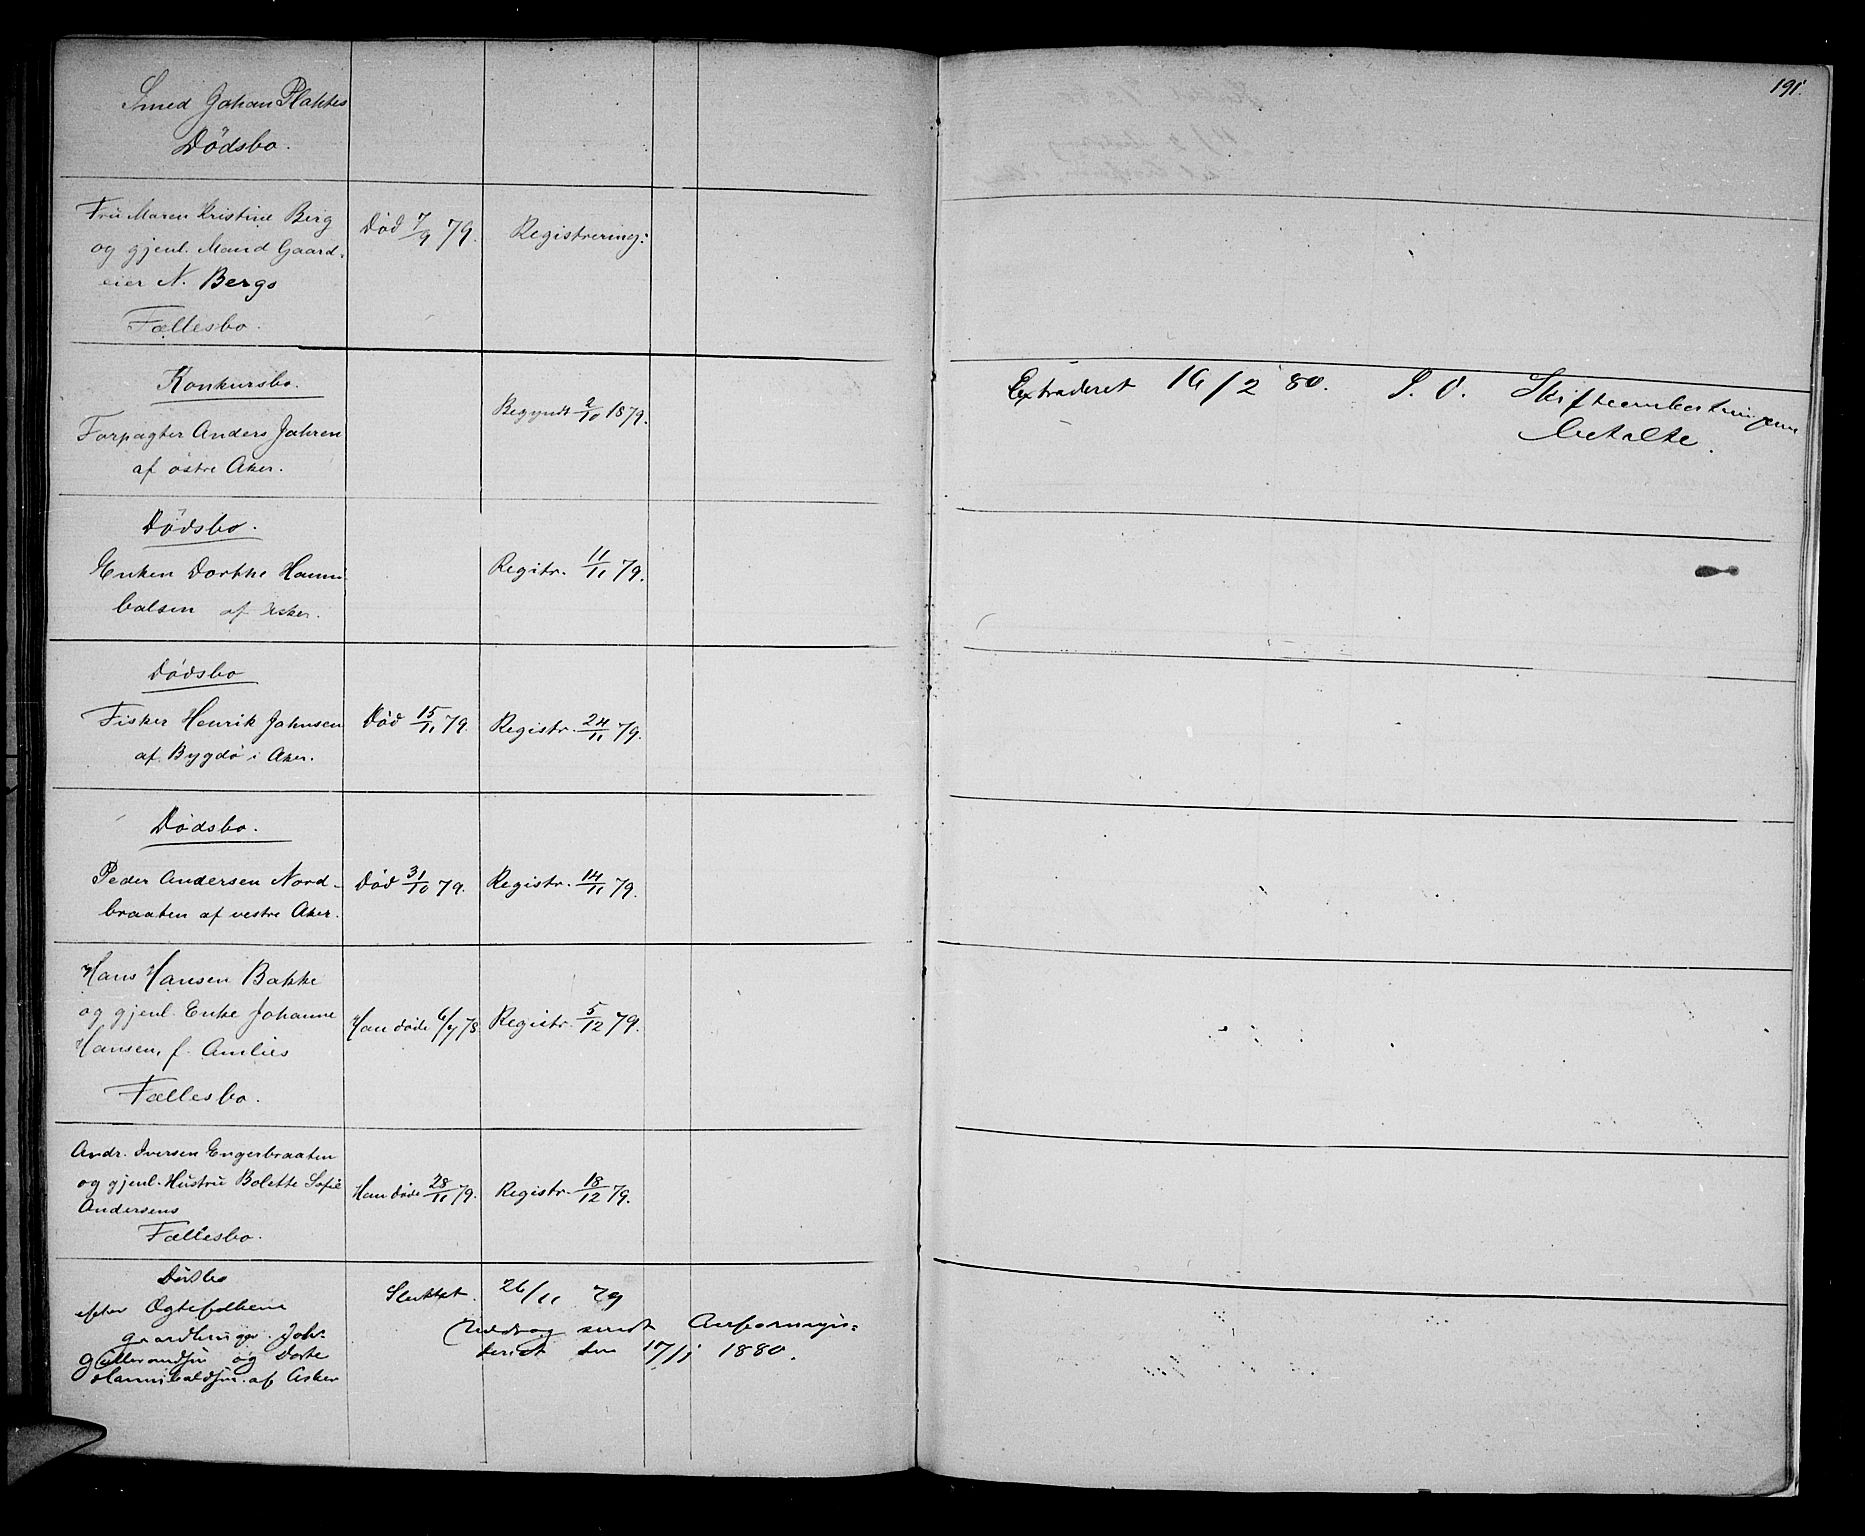 191.
Smed Johan Plahtes
Dödsbo.
Fru Maren Kristine Berg
og gjenl. Mand Gaard-
eier N. Bergs
Fællesbo.
Död 7/9 79.
Registrering:
Konkursbo.
Forpagter Anders Jahren
af østre Aker.
Begyndt 2/10 1879.
Extraderet 16/2 80. S. O. Skifteomkostningerne
betalte.
Dödsbo.
Enken Dorthe Hanni
balsen af Asker.
Registr. 11/11 79.
Dödsbo
Fisker Henrik Johnsen
af Bygdø i Aker.
Död 15/11 79.
Registr. 24/11 79.
Dödsbo.
Peder Andersen Nord-
braaten af vestre Aker.
Död 31/10 79.
Registr. 14/11 79.
Hans Hansen Bakke
og gjenl. Enke Johanne
Hansen, f. Amlies
Fællesbo.
Han døde 6/7 78
Registr. 5/12 79.
Andr. Iversen Engerbraaten
og gjenl. Hustru Bolette Sofie
Andersens
Fællesbo.
Han døde 28/11 79.
Registr. 18/12 79.
Dødsbo
efter Ægtefolkene
gaardbruger Joh.
Gulbrandsen og Dorte
Hannibaldsen af Asker
Sluttet. 26/11 79
Uddrag sendt
den 17/1 1880.